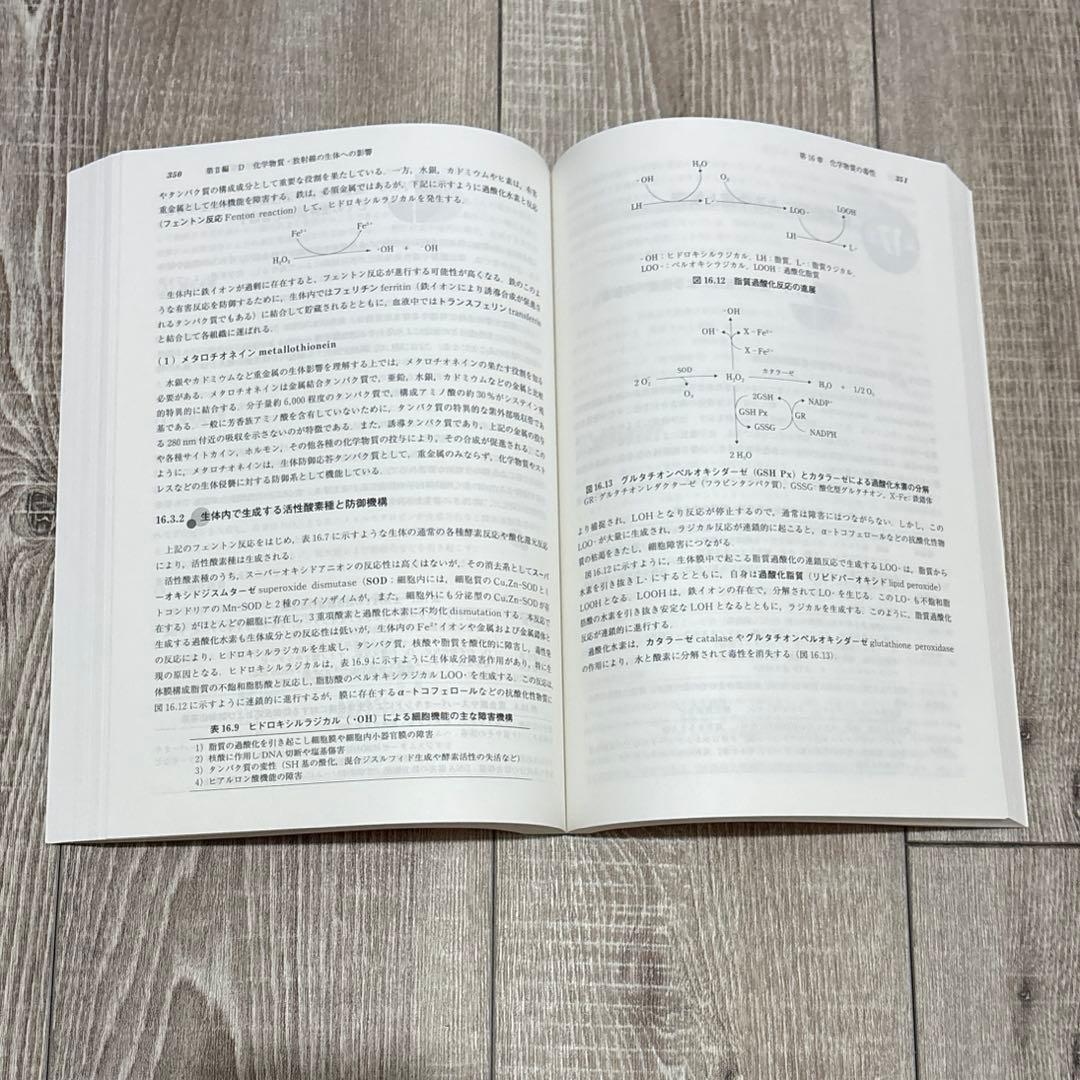 350 第Ⅱ編 D 化学物質・放射線の生体への影響
やタンパク質の構成成分として重要な役割を果たしている.一方,水銀,カドミウムやヒ素は,有害
重金属として生体機能を障害する.鉄は,必須金属ではあるが,下記に示すように過酸化水素と反応
(フェントン反応 Fenton reaction)して,ヒドロキシルラジカルを発生する.
Fe²⁺ Fe³⁺
H₂O₂ ・OH + ⁻OH
生体内に鉄イオンが過剰に存在すると,フェントン反応が進行する可能性が高くなる.鉄のこのよ
うな有害反応を防御するために,生体内ではフェリチン ferritin(鉄イオンにより誘導合成が促進さ
れるタンパク質でもある)に結合して貯蔵されるとともに,血液中ではトランスフェリン transferrin
と結合して各組織に運ばれる.
(1)メタロチオネイン metallothionein
水銀やカドミウムなど重金属の生体影響を理解する上では,メタロチオネインの果たす役割を知る
必要がある.メタロチオネインは金属結合タンパク質で,亜鉛,水銀,カドミウムなどの金属と比較
的特異的に結合する.分子量約 6,000 程度のタンパク質で,構成アミノ酸の約 30%がシステイン残
基である.一般に芳香族アミノ酸を含有していないために,タンパク質の特異的な紫外部吸収帯であ
る 280 nm 付近の吸収を示さないのが特徴である.また,誘導タンパク質であり,上記の金属の投与
や各種サイトカイン,ホルモン,その他各種の化学物質の投与により,その合成が促進される.この
ように,メタロチオネインは,生体防御応答タンパク質として,重金属のみならず,化学物質やスト
レスなどの生体侵襲に対する防御系として機能している.
16.3.2 生体内で生成する活性酸素種と防御機構
上記のフェントン反応をはじめ,表 16.7 に示すような生体の通常の各種酵素反応や酸化還元反応
により,活性酸素種は生成される.
活性酸素種のうち,スーパーオキシドアニオンの反応性は高くはないが,その消去系としてスーパ
ーオキシドジスムターゼ superoxide dismutase(SOD:細胞内には,細胞質の Cu,Zn-SOD とミ
トコンドリアの Mn-SOD と 2 種のアイソザイムが,また,細胞外にも分泌型の Cu,Zn-SOD が存
在する)がほとんどの細胞に存在し,3 重項酸素と過酸化水素に不均化 dismutation する.本反応で
生成する過酸化水素も生体成分との反応性は低いが,生体内の Fe²⁺イオンや金属および金属錯体と
の反応により,ヒドロキシルラジカルを生成し,タンパク質,核酸や脂質を酸化的に障害し,毒性発
現の原因となる.ヒドロキシルラジカルは,表 16.9 に示すように生体成分障害作用があり,特に生
体膜構成脂質の不飽和脂肪酸と反応し,脂肪酸のペルオキシラジカル LOO・を生成する.この反応は,
図 16.12 に示すように連鎖的に進行するが,膜に存在するα-トコフェロールなどの抗酸化性物質に
表 16.9 ヒドロキシルラジカル(・OH)による細胞機能の主な障害機構
1)脂質の過酸化を引き起こし細胞膜や細胞内小器官膜の障害
2)核酸に作用しDNA 切断や塩基傷害
3)タンパク質の変性(SH 基の酸化,混合ジスルフィド生成や酵素活性の失活など)
4)ヒアルロン酸機能の障害
第 16 章 化学物質の毒性 351
・OH H₂O O₂
LH L・ LOO・ LOOH
LH L・
・OH:ヒドロキシルラジカル,LH:脂質,L・:脂質ラジカル,
LOO・:ペルオキシラジカル,LOOH:過酸化脂質
図 16.12 脂質過酸化反応の進展
・OH
OH⁻ X-Fe³⁺
X-Fe²⁺
2 O₂⁻ SOD H₂O₂ カタラーゼ H₂O + 1/2 O₂
O₂
2GSH NADP⁺
GSH Px GR
GSSG NADPH
2 H₂O
図 16.13 グルタチオンペルオキシダーゼ(GSH Px)とカタラーゼによる過酸化水素の分解
GR:グルタチオンレダクターゼ(フラビンタンパク質),GSSG:酸化型グルタチオン,X-Fe:鉄錯体
より捕捉され,LOH となり反応が停止するので,通常は障害にはつながらない.しかし,この
LOO・が大量に生成され,ラジカル反応が連鎖的に起こると,α-トコフェロールなどの抗酸化性物
質の枯渇をきたし,細胞障害につながる.
図 16.12 に示すように,生体膜中で起こる脂質過酸化の連鎖反応で生成する LOO・は,脂質から
水素を引き抜き L・にするとともに,自身は過酸化脂質(リピドパーオキシド lipid peroxide)
LOOH となる.LOOH は,鉄イオンの存在で,分解されて LO・を生じる.この LO・も不飽和脂
肪酸の水素を引き抜き安定な LOH となるとともに,ラジカルを生成する.このように,脂質過酸化
反応が連鎖的に進行する.
過酸化水素は,カタラーゼ catalase やグルタチオンペルオキシダーゼ glutathione peroxidase
の作用により,水と酸素に分解されて毒性を消失する(図 16.13).